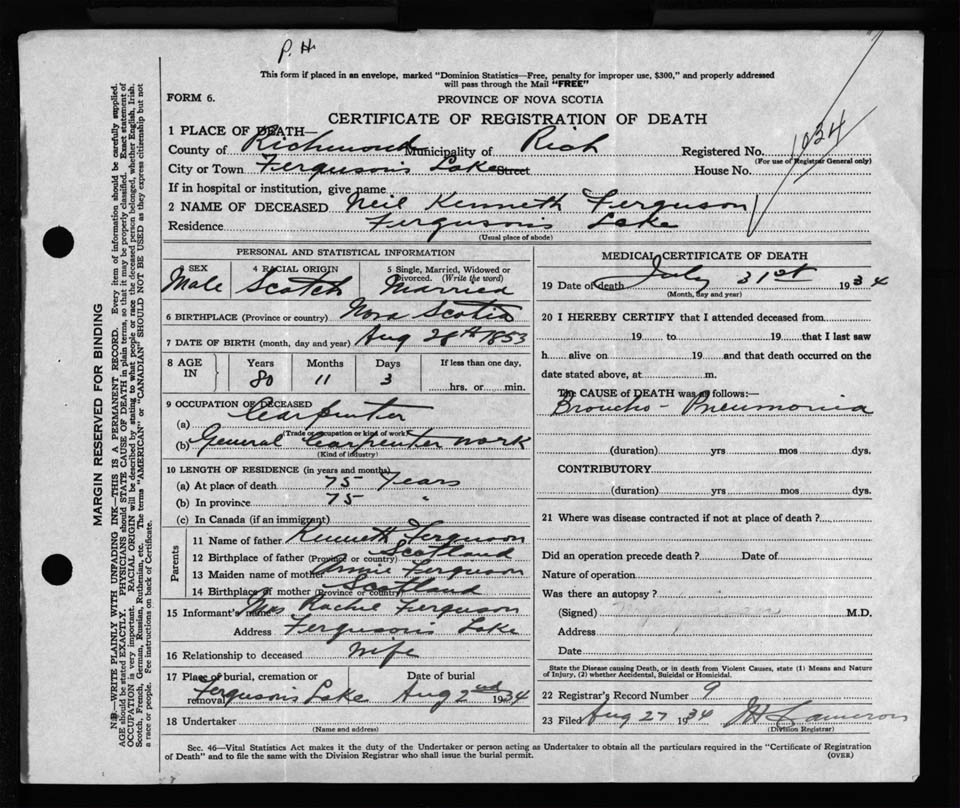 P. H.
This form if placed in an envelope, marked "Dominion Statistics—Free, penalty for improper use, $300," and properly addressed
will pass through the Mail "FREE"
FORM 6.
PROVINCE OF NOVA SCOTIA
CERTIFICATE OF REGISTRATION OF DEATH
1 PLACE OF DEATH—
County of Richmond Municipality of Rich Registered No. 1034
(For use of Registrar General only)
City or Town Ferguson's Lake Street House No.
If in hospital or institution, give name
2 NAME OF DECEASED Neil Kenneth Ferguson
Residence Ferguson's Lake
(Usual place of abode)
PERSONAL AND STATISTICAL INFORMATION
3 SEX 4 RACIAL ORIGIN 5 Single, Married, Widowed or Divorced. (Write the word)
Male Scotch Married
6 BIRTHPLACE (Province or country) Nova Scotia
7 DATE OF BIRTH (month, day and year) Aug 28th 1853
8 AGE IN Years Months Days If less than one day,
80 11 3 hrs. or min.
9 OCCUPATION OF DECEASED
(a) Carpenter
(Trade or occupation or kind of work)
(b) General Carpenter work
(Kind of industry)
10 LENGTH OF RESIDENCE (in years and months)
(a) At place of death 75 Years
(b) In province 75 "
(c) In Canada (if an immigrant)
Parents
11 Name of father Kenneth Ferguson
12 Birthplace of father (Province or country) Scotland
13 Maiden name of mother Annie Ferguson
14 Birthplace of mother (Province or country) Scotland
15 Informant's name Mrs Rachie Ferguson
Address Ferguson's Lake
16 Relationship to deceased Wife
17 Place of burial, cremation or removal Date of burial
Ferguson's Lake Aug 2nd 1934
18 Undertaker
(Name and address)
MEDICAL CERTIFICATE OF DEATH
19 Date of death July 31st 1934
(Month, day and year)
20 I HEREBY CERTIFY that I attended deceased from
19 to 19 that I last saw
h alive on 19 and that death occurred on the
date stated above, at m.
The CAUSE of DEATH was as follows:
Broncho-Pneumonia
(duration) yrs mos dys.
CONTRIBUTORY
(duration) yrs mos dys.
21 Where was disease contracted if not at place of death ?
Did an operation precede death ? Date of
Nature of operation
Was there an autopsy ?
(Signed) M.D.
Address
Date
State the Disease causing Death, or in death from Violent Causes, state (1) Means and Nature
of Injury, (2) whether Accidental, Suicidal or Homicidal.
22 Registrar's Record Number 9
23 Filed Aug 27 1934 Cameron
(Division Registrar)
Sec. 46—Vital Statistics Act makes it the duty of the Undertaker or person acting as Undertaker to obtain all the particulars required in the "Certificate of Registration
of Death" and to file the same with the Division Registrar who shall issue the burial permit. (OVER)
MARGIN RESERVED FOR BINDING
N.B.—WRITE PLAINLY WITH UNFADING INK—THIS IS A PERMANENT RECORD. Every item of information should be carefully supplied.
AGE should be stated EXACTLY. PHYSICIANS should STATE CAUSE OF DEATH in plain terms, so that it may be properly classified. Exact statement of
OCCUPATION is very important. RACIAL ORIGIN will be described by stating to what people or race the deceased person belonged, whether English, Irish,
Scotch, French, German, Russian, Ruthenian, etc. The terms "AMERICAN" or "CANADIAN" SHOULD NOT BE USED as they express citizenship but not
a race or people. See instructions on back of Certificate.